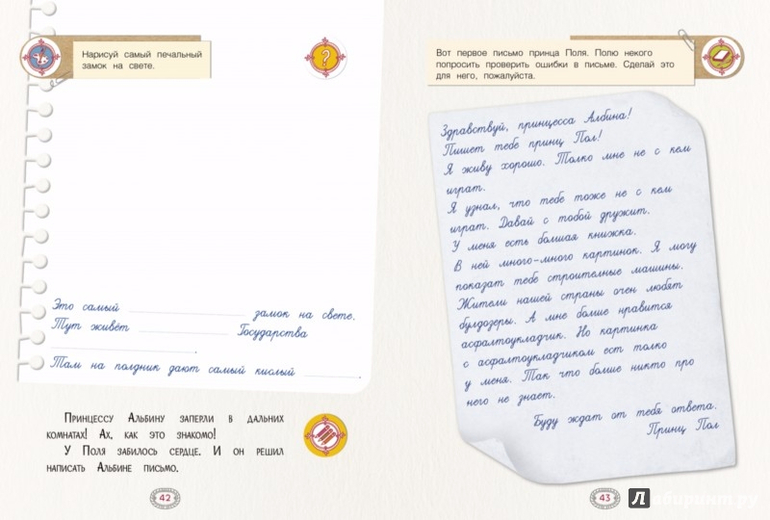 Нарисуй самый печальный
замок на свете.
Это самый замок на свете.
Тут живёт Государства
.
Там на полдник дают самый кислый .
Принцессу Альбину заперли в дальних
комнатах! Ах, как это знакомо!
У Поля забилось сердце. И он решил
написать Альбине письмо.
42
Вот первое письмо принца Поля. Полю некого
попросить проверить ошибки в письме. Сделай это
для него, пожалуйста.
Здравствуй, принцесса Албина!
Пишет тебе принц Пол!
Я живу хорошо. Толко мне не с кем
играт.
Я узнал, что тебе тоже не с кем
играт. Давай с тобой дружит.
У меня есть болшая книжка.
В ней много-много картинок. Я могу
показат тебе строителные машины.
Жители нашей страны очен любят
булдозеры. А мне болше нравится
асфалтоукладчик. Но картинка
с асфалтоукладчиком ест толко
у меня. Так что болше никто про
него не знает.
Буду ждат от тебя ответа.
Принц Пол
43
Лабиринт.ру